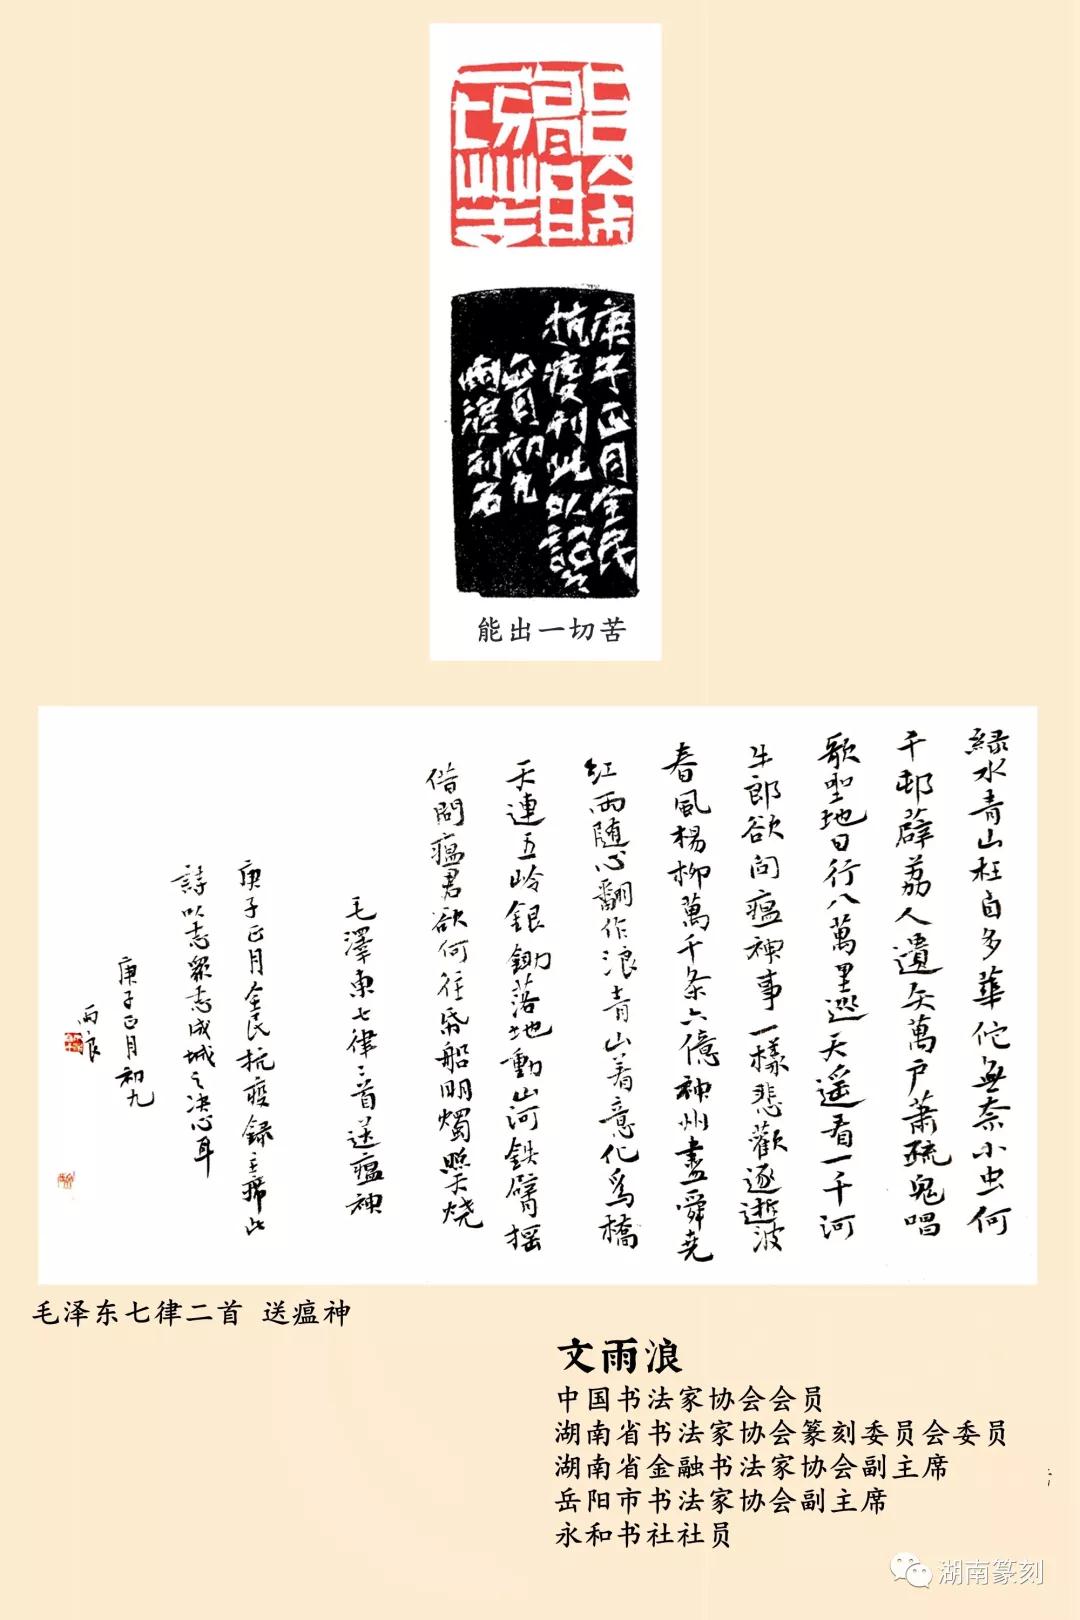 能除
一切苦
庚子正月全民
抗疫刊此以記之
正月初九
雨浪刻石
能出一切苦
綠水青山枉自多華佗無奈小虫何
千邨薜荔人遺矢萬户蕭疏鬼唱
歌坐地日行八萬里巡天遥看一千河
牛郎欲问瘟神事一樣悲歡逐逝波
春風楊柳萬千条六億神州盡舜堯
红雨随心翻作浪青山着意化為橋
天連五岭銀鋤落地動山河铁臂摇
借問瘟君欲何往帋船明燭照天烧
毛澤東七律二首送瘟神
庚子正月全民抗疫録主席此
詩以志衆志成城之决心耳
庚子正月初九
雨浪
毛泽东七律二首 送瘟神
文雨浪
中国书法家协会会员
湖南省书法家协会篆刻委员会委员
湖南省金融书法家协会副主席
岳阳市书法家协会副主席
永和书社社员
湖南篆刻